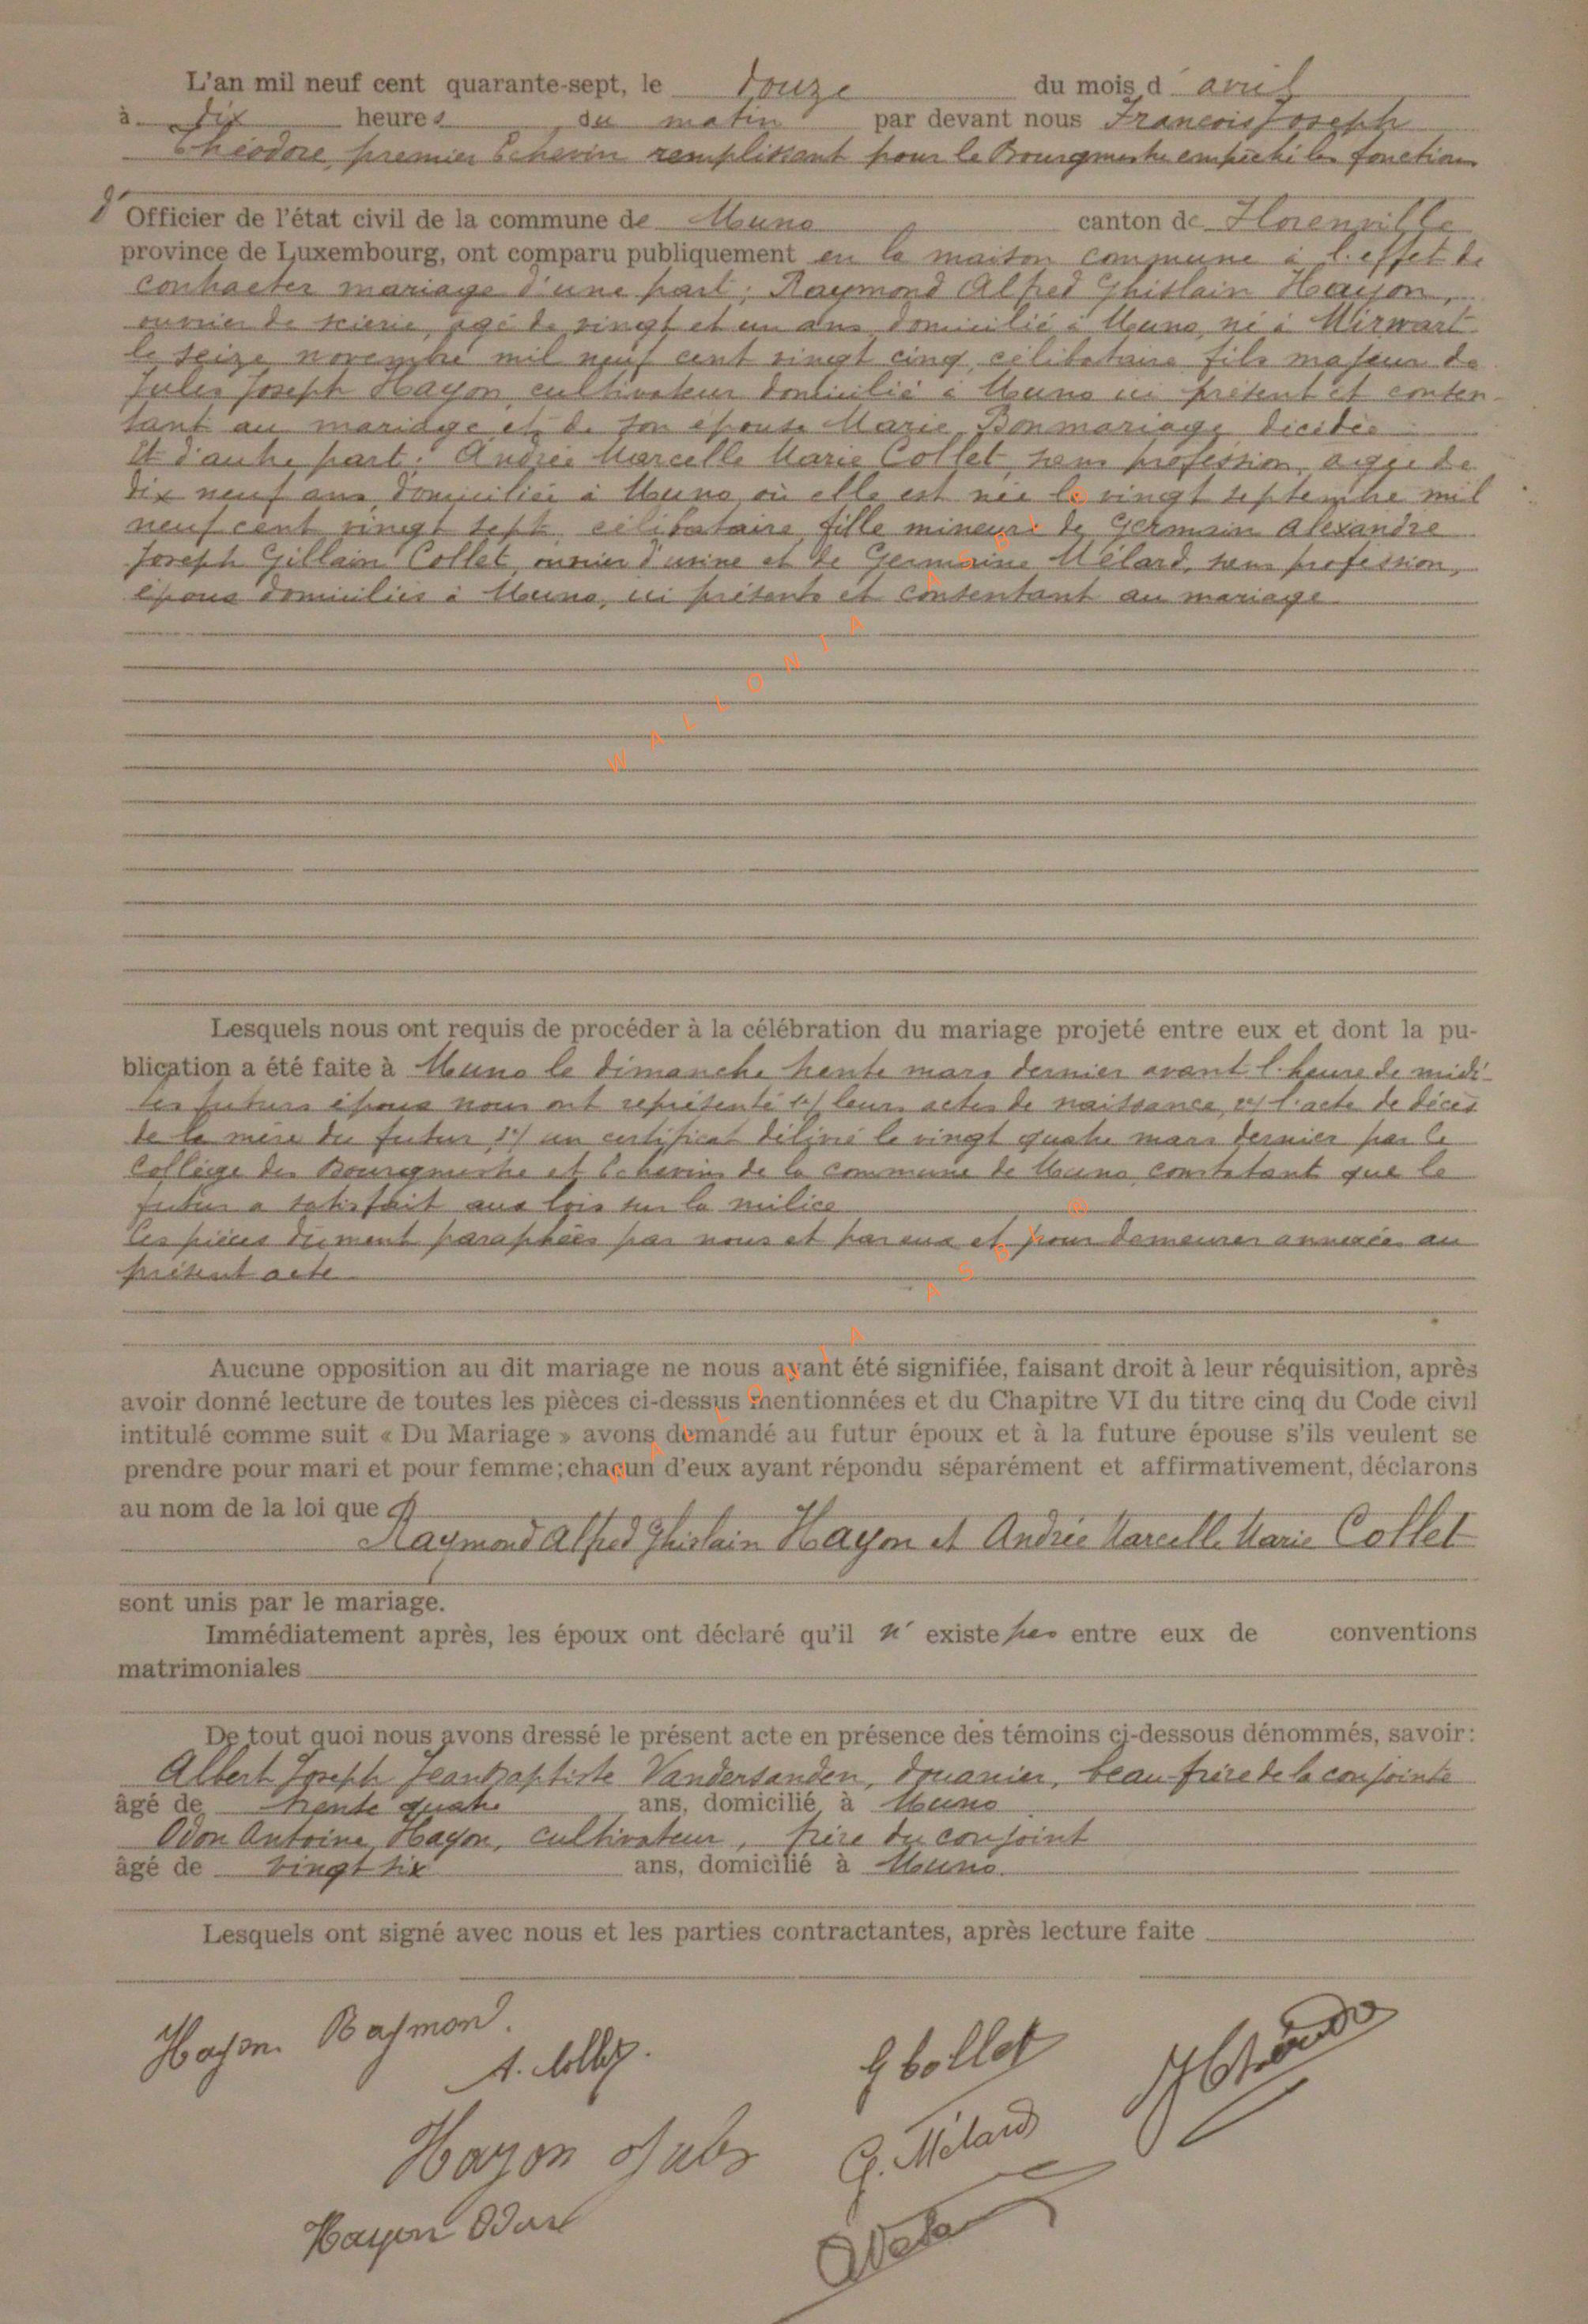 L'an mil neuf cent quarante-sept, le douze du mois d' avril
à dix heures du matin par devant nous François Joseph
Théodore, premier Echevin remplissant pour le Bourgmestre empêché les fonctions
d' Officier de l'état civil de la commune de Muno canton de Florenville
province de Luxembourg, ont comparu publiquement en la maison commune à l'effet de
contracter mariage d'une part: Raymond Alfred Ghislain Hayon,
ouvrier de scierie, âgé de vingt et un ans, domicilié à Muno, né à Mirwart
le seize novembre mil neuf cent vingt cinq, célibataire fils majeur de
Jules Joseph Hayon, cultivateur domicilié à Muno ici présent et consen-
tant au mariage et de son épouse Marie Bonmariage décédée
Et d'autre part: Andrée Marcelle Marie Collet, sans profession, agée de
dix neuf ans, domiciliée à Muno, où elle est née le vingt septembre mil
neuf cent vingt sept, célibataire, fille mineure de Germain Alexandre
Joseph Gillain Collet, ouvrier d'usine et de Germaine Mélard, sans profession,
époux domiciliés à Muno, ici présents et consentant au mariage
WALLONIA ASBL
Lesquels nous ont requis de procéder à la célébration du mariage projeté entre eux et dont la pu-
blication a été faite à Muno le dimanche trente mars dernier avant l'heure de midi
Les futurs époux nous ont représenté 1°/ leurs actes de naissance, 2°/ l'acte de décès
de la mère du futur, 3°/ un certificat délivré le vingt quatre mars dernier par le
Collège des Bourgmestre et Echevins de la commune de Muno constatant que le
futur a satisfait aux lois sur la milice
Ces pièces dûment paraphées par nous et par eux et pour demeurer annexées au
présent acte
WALLONIA ASBL ®
Aucune opposition au dit mariage ne nous ayant été signifiée, faisant droit à leur réquisition, après
avoir donné lecture de toutes les pièces ci-dessus mentionnées et du Chapitre VI du titre cinq du Code civil
intitulé comme suit « Du Mariage » avons demandé au futur époux et à la future épouse s'ils veulent se
prendre pour mari et pour femme; chacun d'eux ayant répondu séparément et affirmativement, déclarons
au nom de la loi que
Raymond Alfred Ghislain Hayon et Andrée Marcelle Marie Collet
sont unis par le mariage.
Immédiatement après, les époux ont déclaré qu'il n' existe pas entre eux de conventions
matrimoniales
De tout quoi nous avons dressé le présent acte en présence des témoins ci-dessous dénommés, savoir:
Albert Joseph Jean Baptiste Vandersanden, douanier, beau frère de la conjointe
âgé de trente quatre ans, domicilié à Muno
Odon Antoine Hayon, cultivateur, frère du conjoint
âgé de vingt six ans, domicilié à Muno.
Lesquels ont signé avec nous et les parties contractantes, après lecture faite
Hayon Raymond.
A. Collet.
G Collet
Hayon Jules
G. Mélard
Hayon Odon